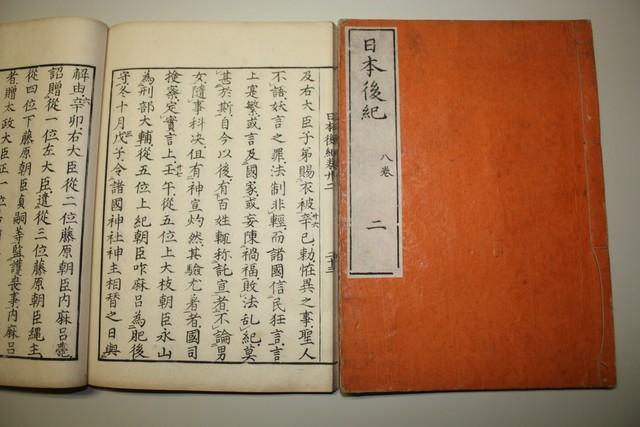 日本後紀
八卷
二
日本後紀卷廿二
及右大臣子弟賜衣被辛巳勅恠異之事聖人
不語妖言之罪法制非輕而諸國信民狂言言
上寔繁或言及國家或妄陳禍福敗法乱紀莫
甚於斯自今以後有百姓輙称託宣者不論男
女隨事科决但有神宣灼然其驗尤著者國司
撿察定實言上壬午從五位上大枝朝臣永山
為刑部大輔從五位上紀朝臣咋麻呂為肥後
守冬十月戊子令諸國神社神主相替之日與
解由辛卯右大臣從二位藤原朝臣内麻呂薨
詔贈從一位左大臣遣從三位藤原朝臣縄主
從四位下藤原朝臣貞嗣等監護喪事内麻呂
者贈太政大臣正一位